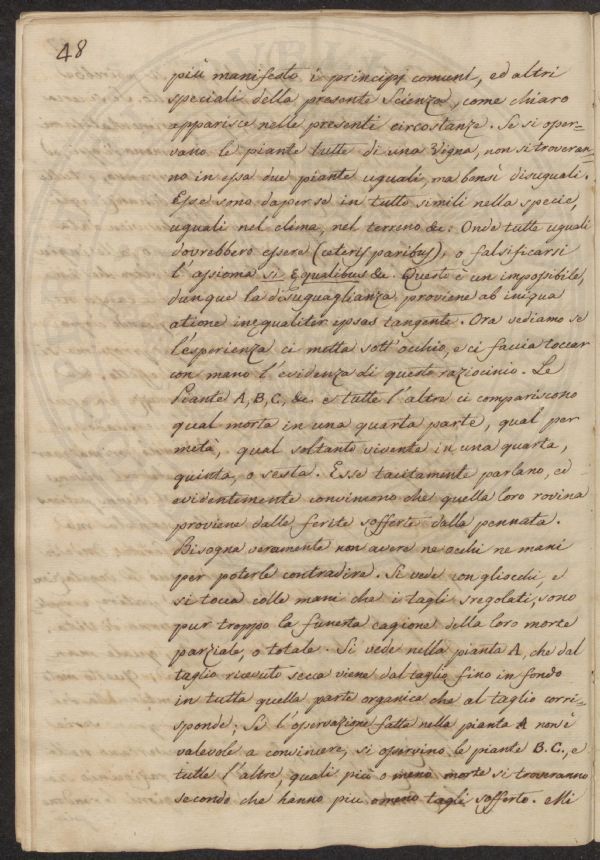 48
più manifesto i principj comuni, ed altri
speciali della presente Scienza, come chiaro
apparisce nelle presenti circostanze. Se si oßer-
vano le piante tutte di una Vigna, non si troveran-
no in eßa due piante uguali, ma bensì disuguali.
Eße sono da per se in tutto simili nella specie,
uguali nel clima, nel terreno &c: Onde tutte uguali
dovrebbero eßere (ceteris paribus), o falsificarsi
l'aßioma si Equalibus &c. Questo è un impoßibile,
dunque la disuguaglianza proviene ab iniqua
atione inequaliter ipsas tangente. Ora vediamo se
l'esperienza ci metta sott'occhio, e ci faccia toccar
con mano l'evidenza di questo raziocinio. Le
Piante A, B, C, &c. e tutte l'altre ci compariscono
qual morta in una quarta parte, qual per
metà, qual soltanto vivente in una quarta,
quinta, o sesta. Eße tacitamente parlano, ed
evidentemente convincono che quella loro rovina
proviene dalle ferite sofferte dalla pennata.
Bisogna veramente non avere ne occhi ne mani
per poterle contradire. Si vede con gli occhi, e
si tocca colle mani che i tagli sregolati, sono
pur troppo la funesta cagione della loro morte
parziale, o totale. Si vede nella pianta A, che dal
taglio ricevuto secca viene dal taglio fino in fondo
in tutta quella parte organica che al taglio corri-
sponde; Se l'oßervazione fatta nella pianta A non è
valevole a convincere, si oßervino le piante B. C., e
tutte l'altre, quali più o meno morte si troveranno
secondo che hanno più o meno tagli sofferto. Mi